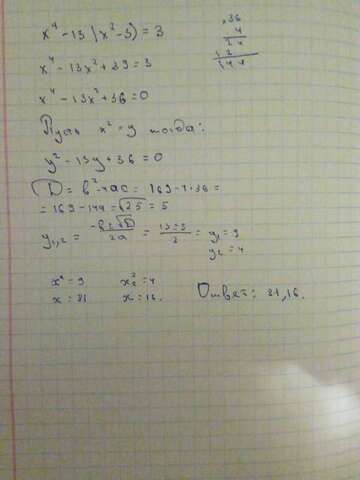 x⁴ - 13 (x² - 3) = 3
36
4
24
12
144
x⁴ - 13x² + 39 = 3
x⁴ - 13x² + 36 = 0
Пусть x² = y тогда:
y² - 13y + 36 = 0
D = b² - 4ac = 169 - 4·36 =
= 169 - 144 = √25 = 5
y₁,₂ = -b±√D/2a = 13±5/2 = y₁ = 9
y₂ = 4
x² = 9 x² = 4
x = 81 x = 16.
Ответ: 81, 16.